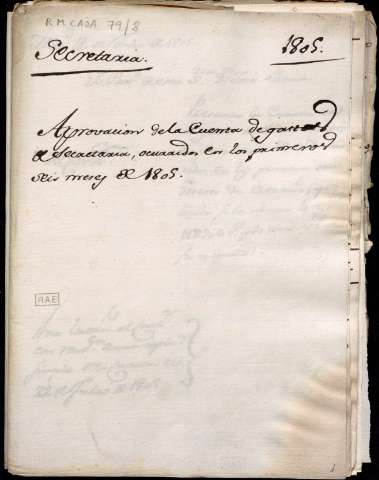 R.M. CAJA 79/8
Secretaria. 1805.
Aprovacion de la Cuenta de gastos
de Secretaria, ocurridos en los primeros
seis meses de 1805.
RAE